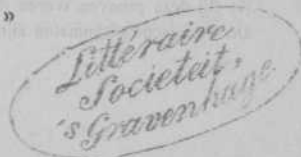 »
Littéraire
Societeit,
's Gravenhage